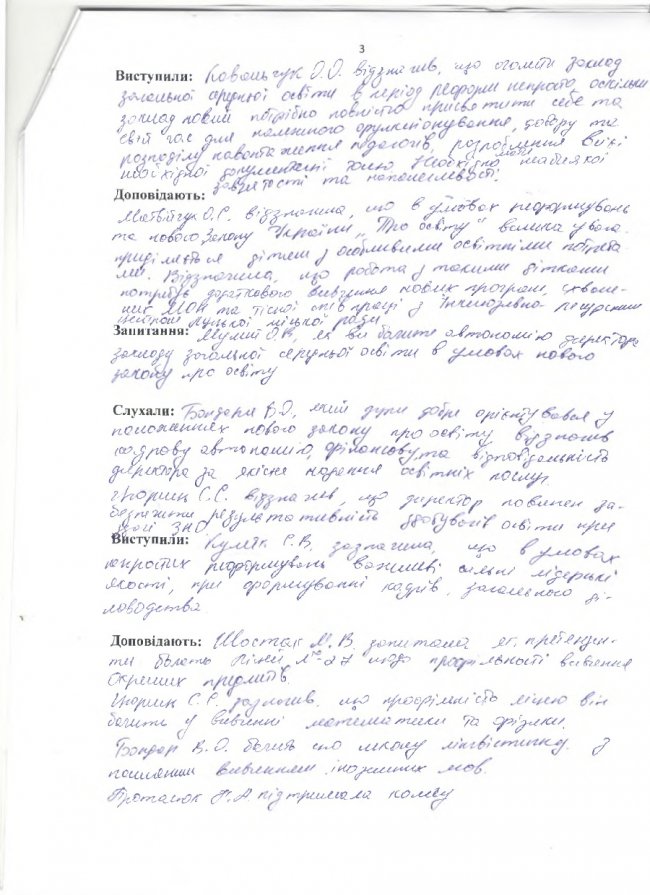 3
Виступили: Ковальчук О.О. відзначив, що очолити заклад
загальної середньої освіти в період реформи непросто, оскільки
заклад новий потрібно повністю присвятити себе та
свій час для належного функціонування, добору та
розподілу навантаження педагогів, розроблення всієї
необхідної документації. Тому необхідно мати
завзятості та наполегливості.
Доповідають:
Матвійчук О.Є. відзначила, що в умовах реформувань
та нового Закону України "Про освіту" велика увага
приділяється дітям з особливими освітніми потреба-
ми. Відзначила, що робота з такими дітками
потребує додаткового вивчення нових програм, схвале-
них МОН та тісної співпраці з Інклюзивно-ресурсним
центром Луцької міської ради
Запитання: О.В, як ви бачите автономію директора
закладу загальної середньої освіти в умовах нового
закону про освіту
Слухали: Бондаря В.О, який дуже добре орієнтувався у
положеннях нового закону про освіту, відзначив
кадрову автономію, фінансову та відповідальність
директора за якісне надання освітніх послуг.
Цюрик С.Є. відзначив, що директор повинен за-
безпечити результативність здобувачів освіти при
здачі ЗНО
Виступили: Кулик С.В. зазначила, що в умовах
непростих реформувань важливі сильні лідерські
якості, при формуванні кадрів, загального ді-
ловодства
Доповідають: Шостак М.В. запитала як претенден-
ти бачать ліцей №27 щодо профільності вивчення
окремих предметів.
Цюрик С.Є. зазначив, що профільність ліцею він
бачить у вивченні математики та фізики.
Бондар В.О. бачить цю школу лінгвістичну, з
посиленим вивченням іноземних мов.
Протасюк Н.А підтримала колегу